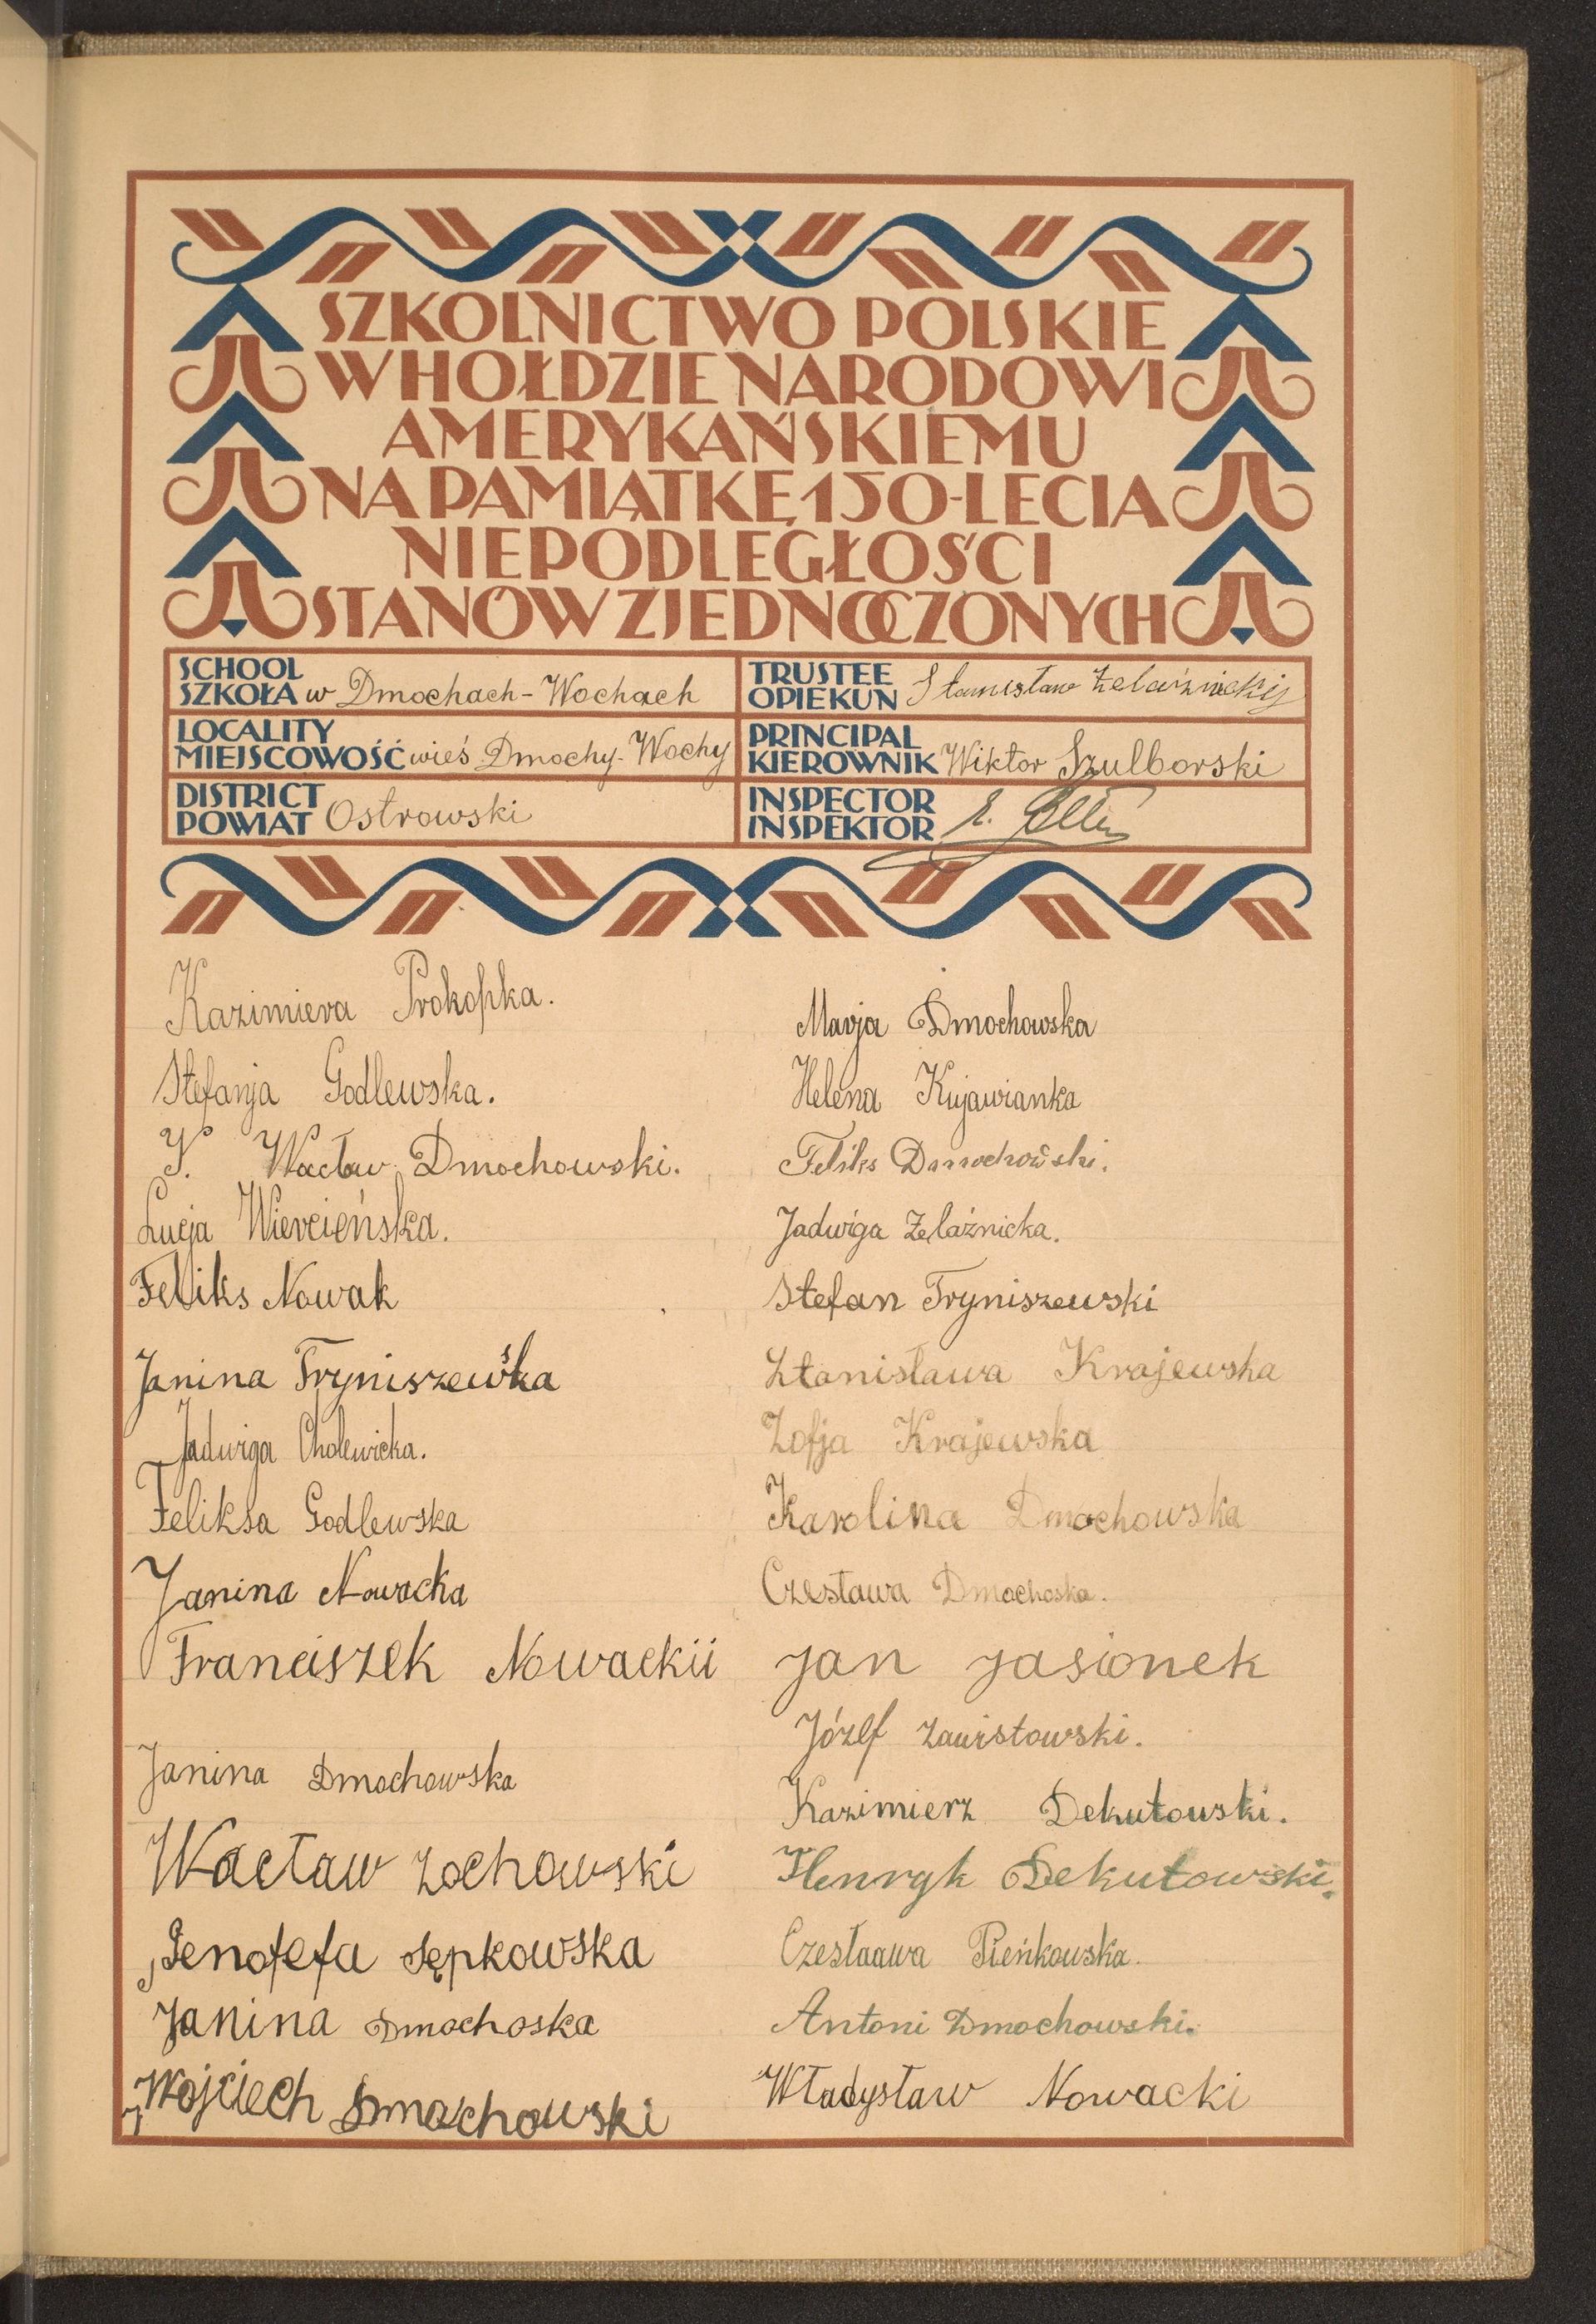 SZKOLNICTWO POLSKIE
W HOŁDZIE NARODOWI
AMERYKAŃSKIEMU
NA PAMIĄTKĘ 150-LECIA
NIEPODLEGŁOŚCI
STANÓW ZJEDNOCZONYCH
SCHOOL
SZKOŁA w Dmochach-Wochach
LOCALITY
MIEJSCOWOŚĆ wieś Dmochy-Wochy
DISTRICT
POWIAT Ostrowski
TRUSTEE
OPIEKUN Stanisław Żelaźnickij
PRINCIPAL
KIEROWNIK Wiktor Szulborski
INSPECTOR
INSPEKTOR
Kazimiera Prokopka.
Stefanja Godlewska.
Wacław Dmochowski.
Łucja Wiercieńska.
Feliks Nowak
Janina Tryniszewska
Jadwiga Cholewicka.
Feliksa Godlewska
Janina Nowacka
Franciszek Nowackii
Janina Dmochowska
Wacław Zochowski
Genofefa Sępkowska
Janina Dmochoska
Wojciech Dmochowski
Marja Dmochowska
Helena Kujawianka
Feliks Dmochowski.
Jadwiga Żelaźnicka.
Stefan Tryniszewski
Stanisława Krajewska
Zofja Krajewska
Karolina Dmochowska
Czesława Dmochoska.
Jan Jasionek
Józef Zawistowski.
Kazimierz Dekutowski.
Henryk Dekutowski.
Czesłaawa Pieńkowska.
Antoni Dmochowski.
Władysław Nowacki